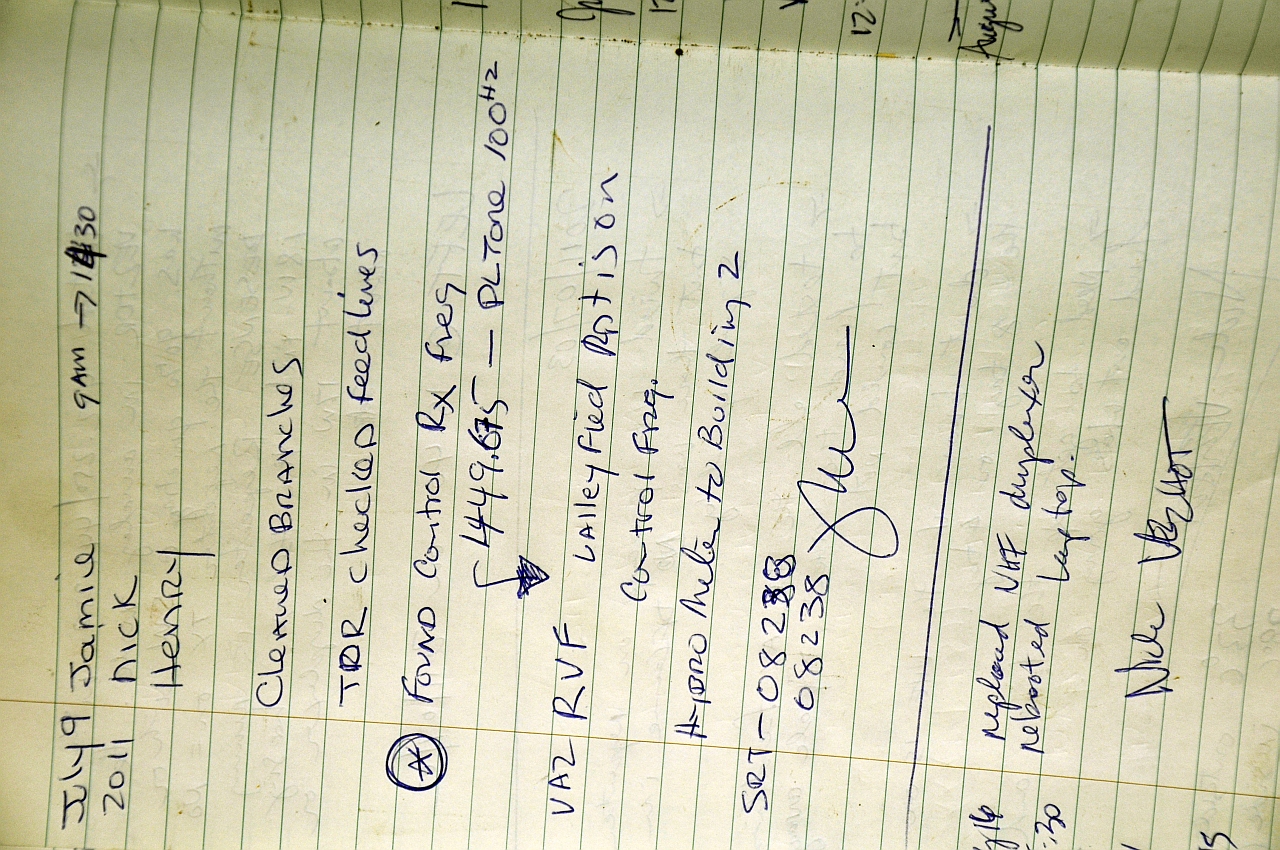 July 9 Jamie 9AM → 1430
2011 NICK
HENRY
Cleaned BRANches
TDR checked Feed Lines
* Found Control Rx Freq
449.675 — PL Tone 100Hz
VA2 RVF VAlleyField Rpt is on
Control Freq.
Hydro Meter to Building 2
SRT-08238
08238
replaced VHF duplexer
:30 rebooted laptop.
Nick
Augus
12: